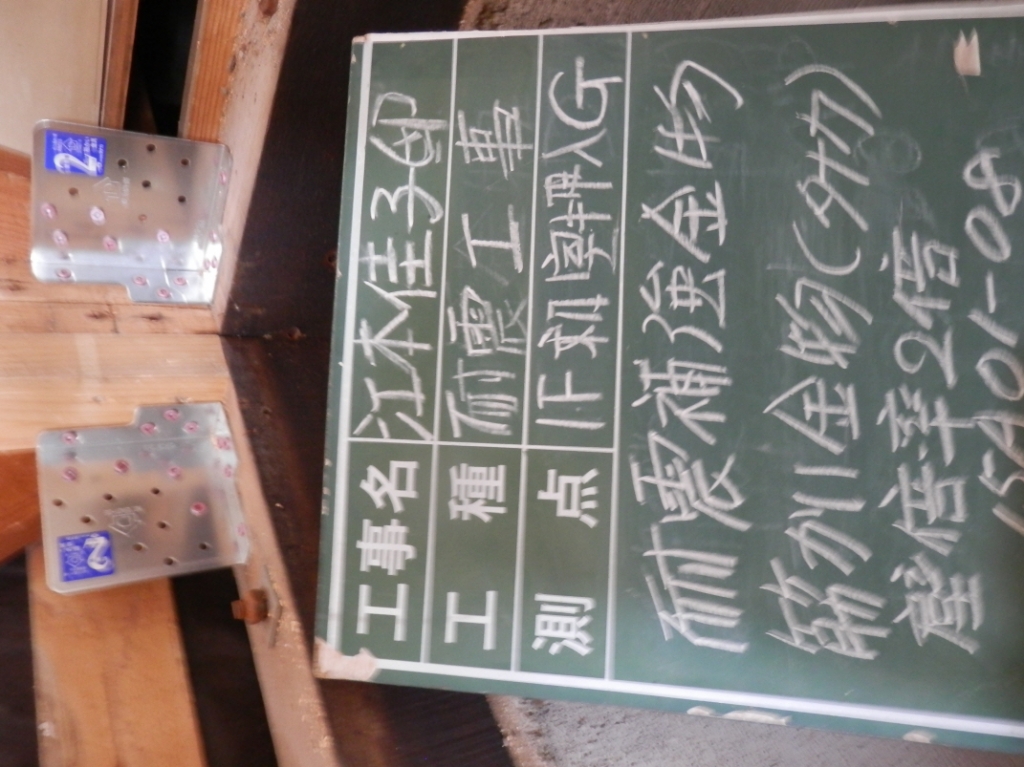 工事名 江木佳子邸
工種 耐震工事
測点 1F 和室押入G
耐震補強金物
筋かい金物(外付)
壁倍率2倍
15A01-08
2
2